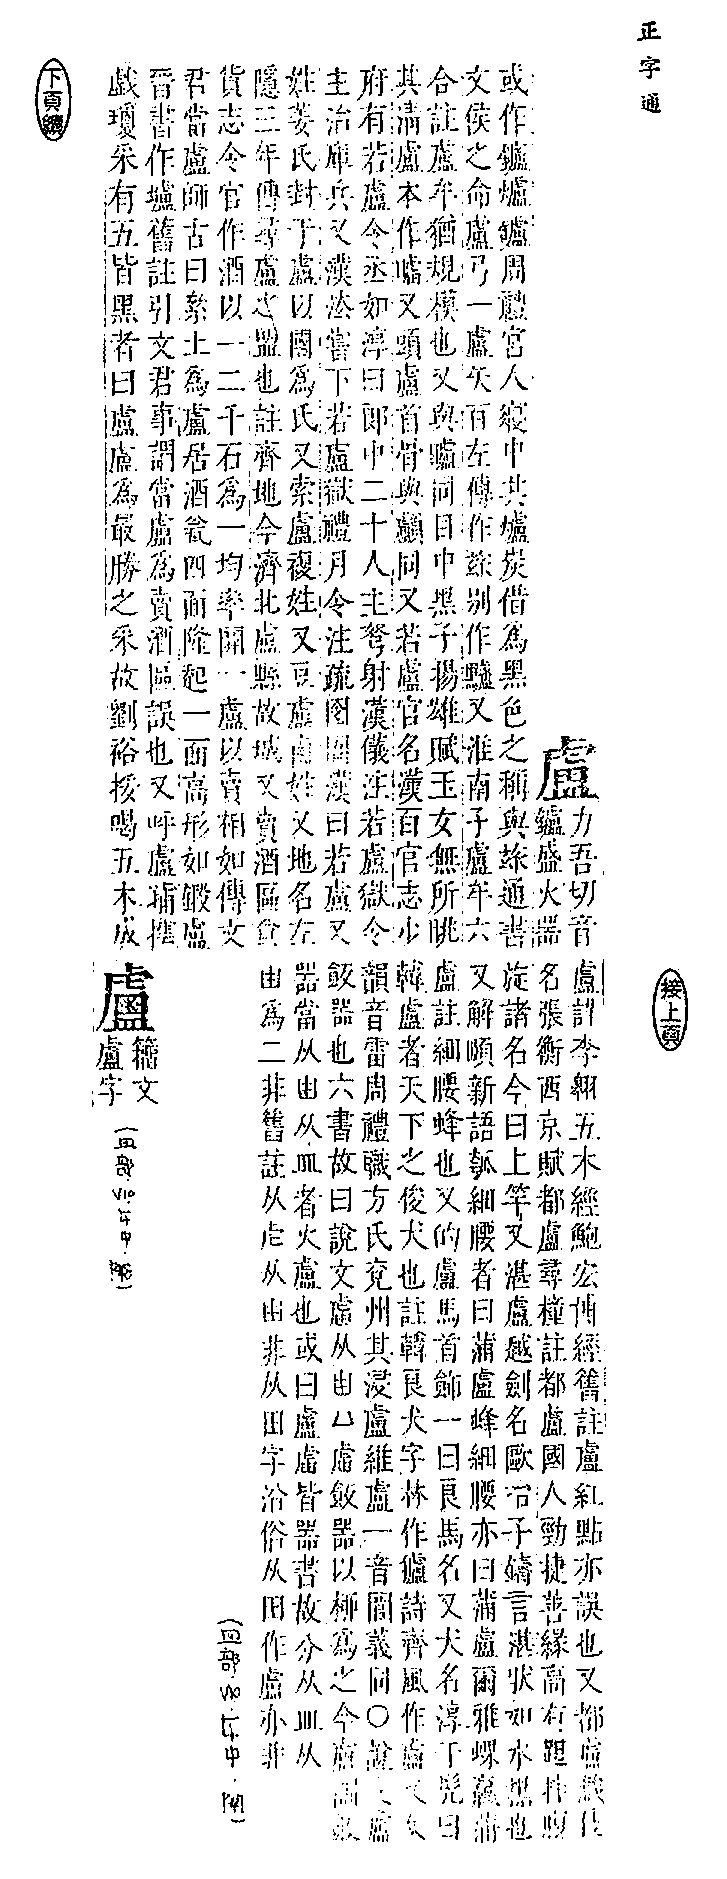 正字通
盧
力吾切音
鑪盛火器
或作鑪爐鱸周禮宮人寢中共爐炭借為黑色之稱與玈通書
文侯之命盧弓一盧矢百左傳作玈别作黸又淮南子盧牟六
合註盧牟猶規模也又與矑同目中黑子揚雄賦玉女無所眺
其清盧本作矑又頭盧首骨與顱同又若盧官名漢百官志少
府有若盧令丞如淳曰郎中二十人主弩射漢儀注若盧獄令
主治庫兵又漢舊下若盧獄禮月令注疏囹圄漢曰若盧又
姓姜氏封于盧以國為氏又索盧複姓又豆盧南姓又地名左
隱三年傳尋盧之盟也註齊地今濟北盧縣故城又賣酒區食
貨志令官作酒以一二千石為一均率開一盧以賣相如傳文
君當盧師古曰累土為盧居酒瓮四面隆起一面高形如鍛盧
晉書作壚舊註引文君事謂當盧為賣酒區誤也又呼盧樗蒱
戲瓊采有五皆黑者曰盧盧為最勝之采故劉裕挼喝五木成
下頁續
接上頁
盧註李翱五木經鮑宏博經舊註盧紅點亦誤也又都盧戲伎
名張衡西京賦都盧尋橦註都盧國人勁捷善緣高有跟挂腹
旋諸名今曰上竿又湛盧越劍名歐冶子鑄言湛狀如水黑也
又解頤新語瓠細腰者曰蒲盧蜂細腰亦曰蒲盧爾雅蜾蠃蒲
盧註細腰蜂也又的盧馬首飾一曰良馬名又犬名淳于髡曰
韓盧者天下之俊犬也註韓良犬字林作獹詩齊風作盧又
韻音雷周禮職方氏兗州其浸盧維盧一音閭義同○說文盧
飯器也六書故曰說文盧从由凵盧飯器以柳為之今盧
器當从由从皿者火盧也或曰盧虘皆器書故分从皿从
由為二非舊註从虍从由非从田字沿俗从田作盧亦非
(皿部·中·)
盧
籀文
盧字
(皿部·中·)